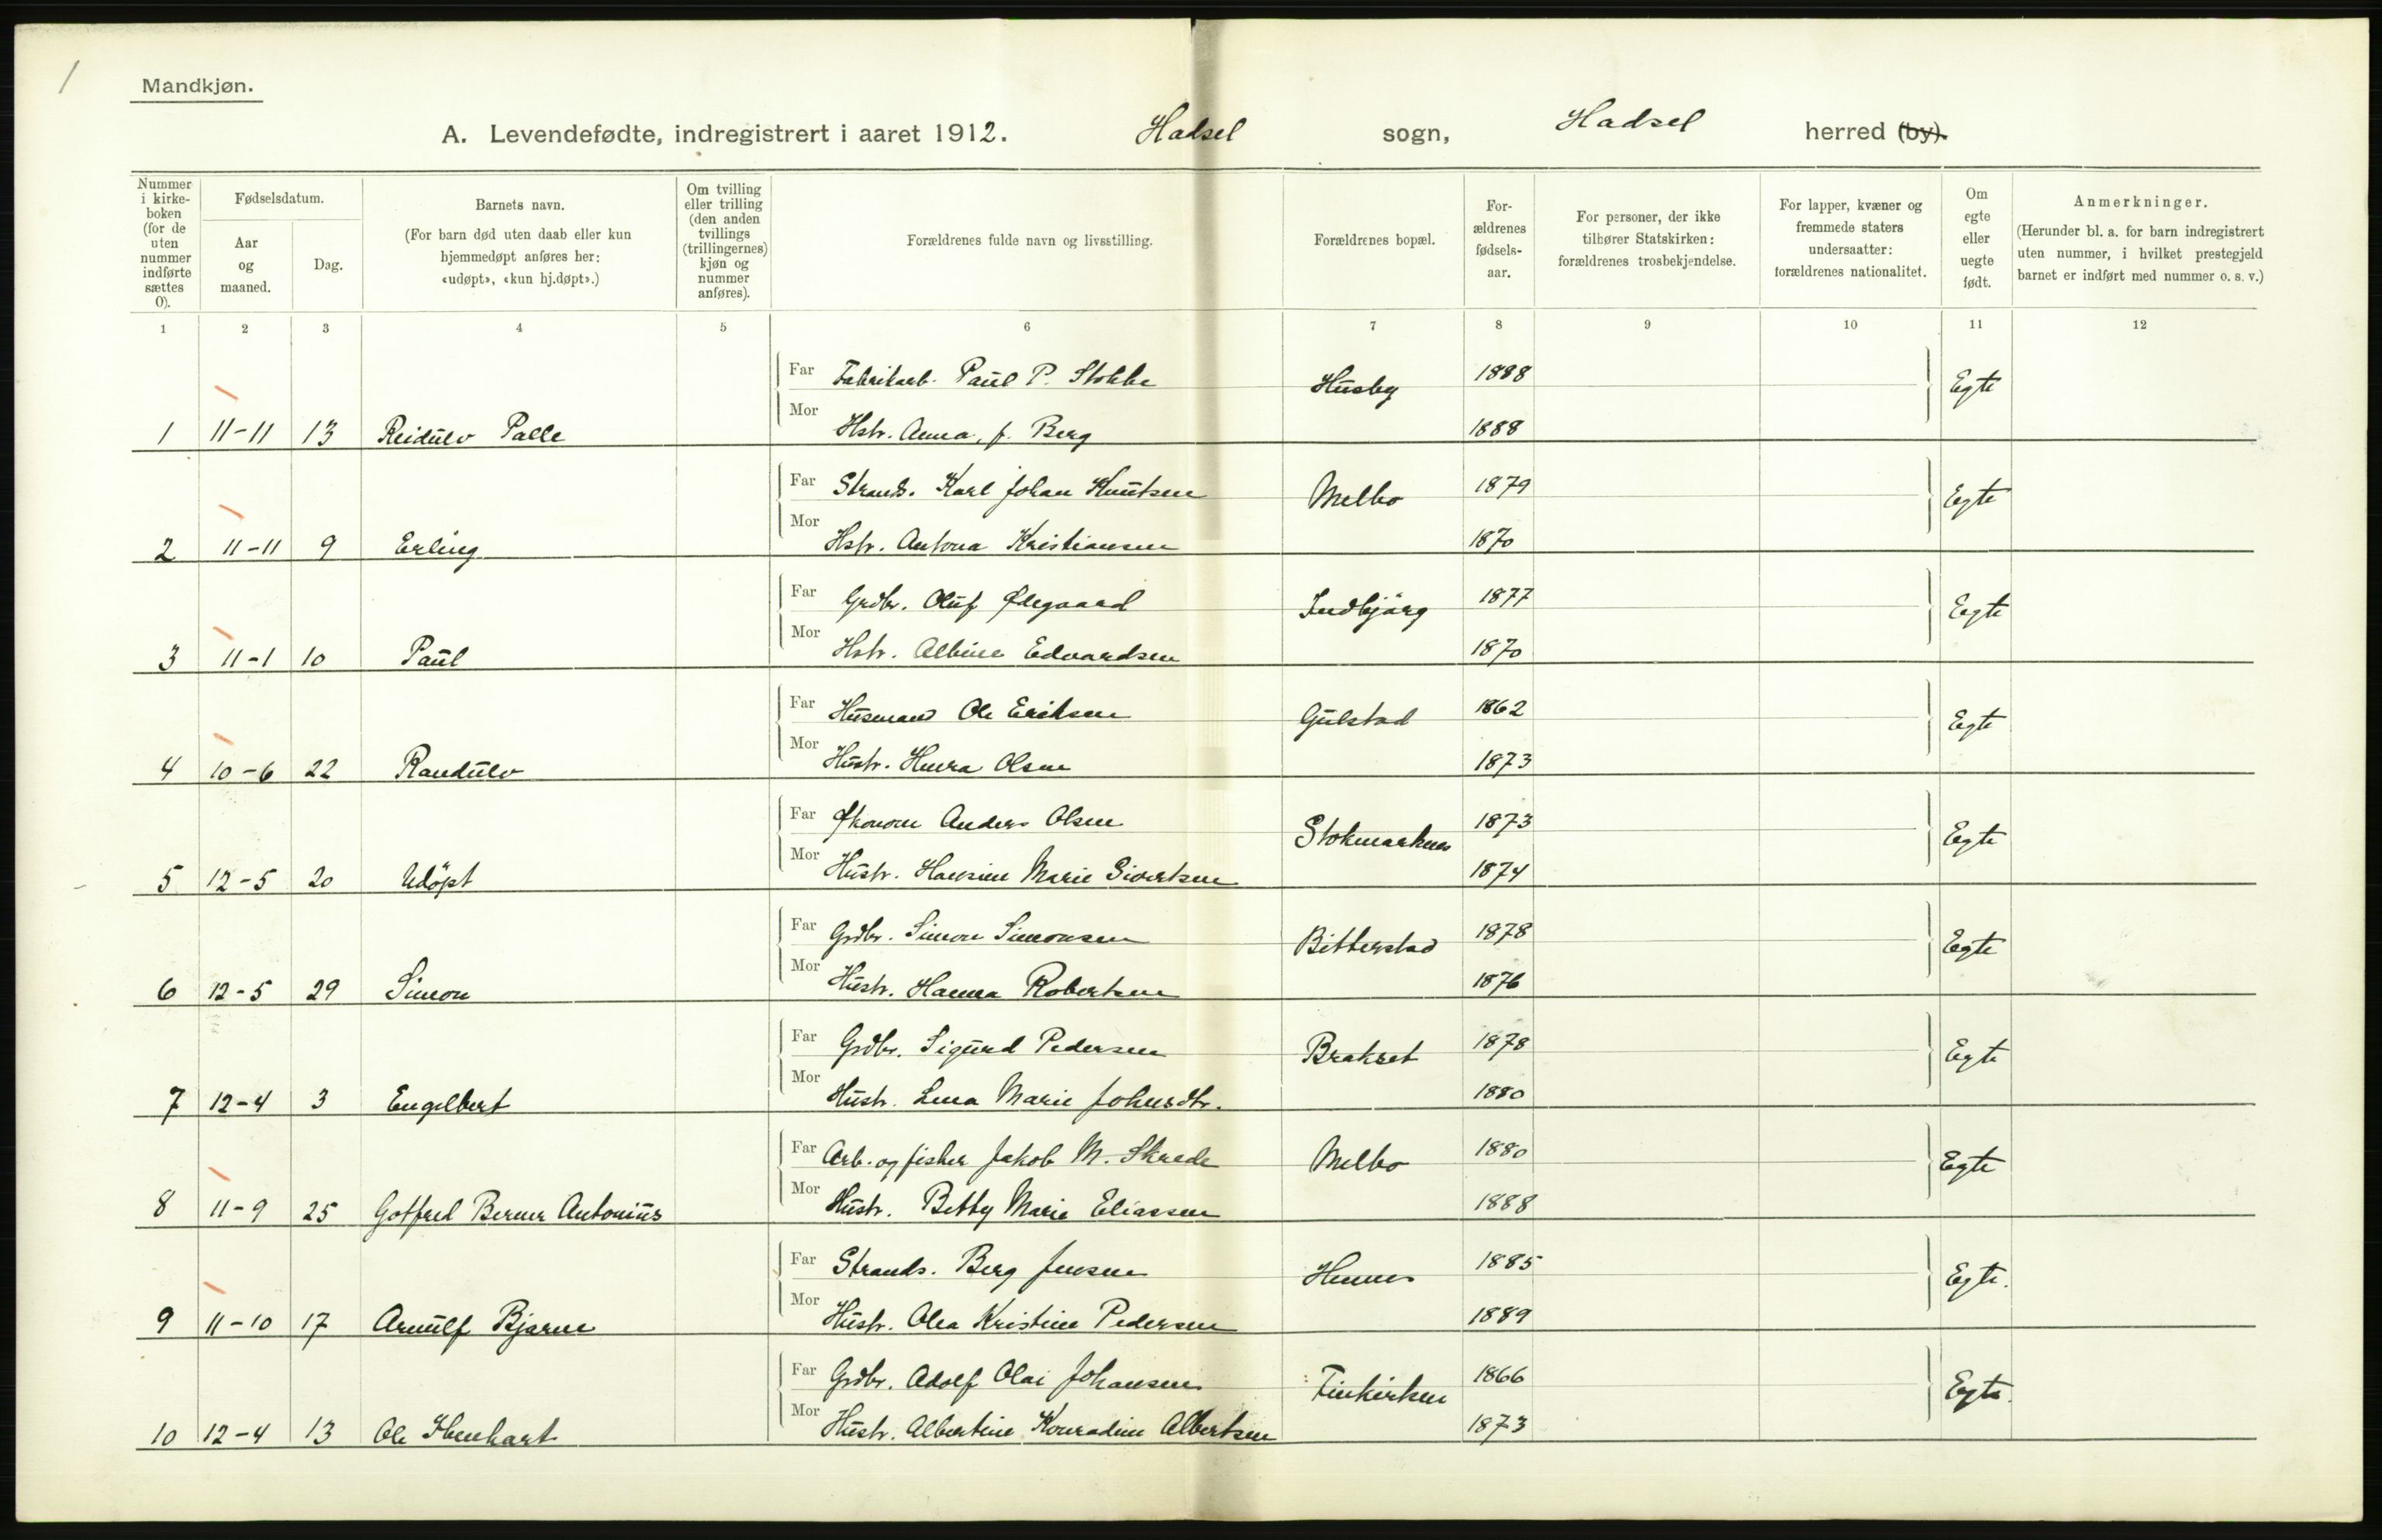 1
Mandkjøn.
A. Levendefødte, indregistrert i aaret 1912. Hadsel sogn, Hadsel herred (by).
Nummer i kirke-boken (for de uten nummer indførte sættes 0).
Fødselsdatum.
Aar og maaned.
Dag.
Barnets navn.
(For barn død uten daab eller kun hjemmedøpt anføres her: «udøpt», «kun hj.døpt».)
Om tvilling eller trilling (den anden tvillings (trillingernes) kjøn og nummer anføres).
Forældrenes fulde navn og livsstilling.
Forældrenes bopæl.
For-ældrenes fødsels-aar.
For personer, der ikke tilhører Statskirken: forældrenes trosbekjendelse.
For lapper, kvæner og fremmede staters undersaatter: forældrenes nationalitet.
Om egte eller uegte født.
Anmerkninger.
(Herunder bl. a. for barn indregistrert uten nummer, i hvilket prestegjeld barnet er indført med nummer o. s. v.)
1 2 3 4 5 6 7 8 9 10 11 12
Far Fabrikarb. Paul P. Stokke Husby 1888 Egte
1 11-11 13 Reidulv Palle Mor Hstr. Anna, f. Berg 1888
Far Strands. Karl Johan Knutsen Melbo 1879 Egte
2 11-11 9 Erling Mor Hstr. Antona Kristiansen 1870
Far Grdbr. Oluf Ødegaard Indbjörg 1877 Egte
3 11-1 10 Paul Mor Hstr. Albine Edvardsen 1870
Far Husmand Ole Eriksen Gulstad 1862 Egte
4 10-6 22 Randulv Mor Hustr. Olsen 1873
Far Økonom Anders Olsen Stokmarknes 1873 Egte
5 12-5 20 Udöpt Mor Hustr. Hansine Marie Sivertsen 1874
Far Grdbr. Simon Simonsen Bitterstad 1878 Egte
6 12-5 29 Simon Mor Hustr. Hanna Robertsen 1876
Far Grdbr. Sigurd Pedersen Brakset 1878 Egte
7 12-4 3 Engelbert Mor Hustr. Lena Marie Johnsdtr. 1880
Far Arb. og fisker Jakob M. Skrede Melbo 1880 Egte
8 11-9 25 Gotfred Berner Antonius Mor Hustr. Betty Marie Eliassen 1888
Far Strands. Berg Jensen 1885 Egte.
9 11-10 17 Arnulf Bjarne Mor Hustr. Olea Kristine Pedersen 1889
Far Grdbr. Adolf Olai Johansen Finkirken 1866 Egte.
10 12-4 13 Ole Mor Hustr. Albertine Konradine Albertsen 1873